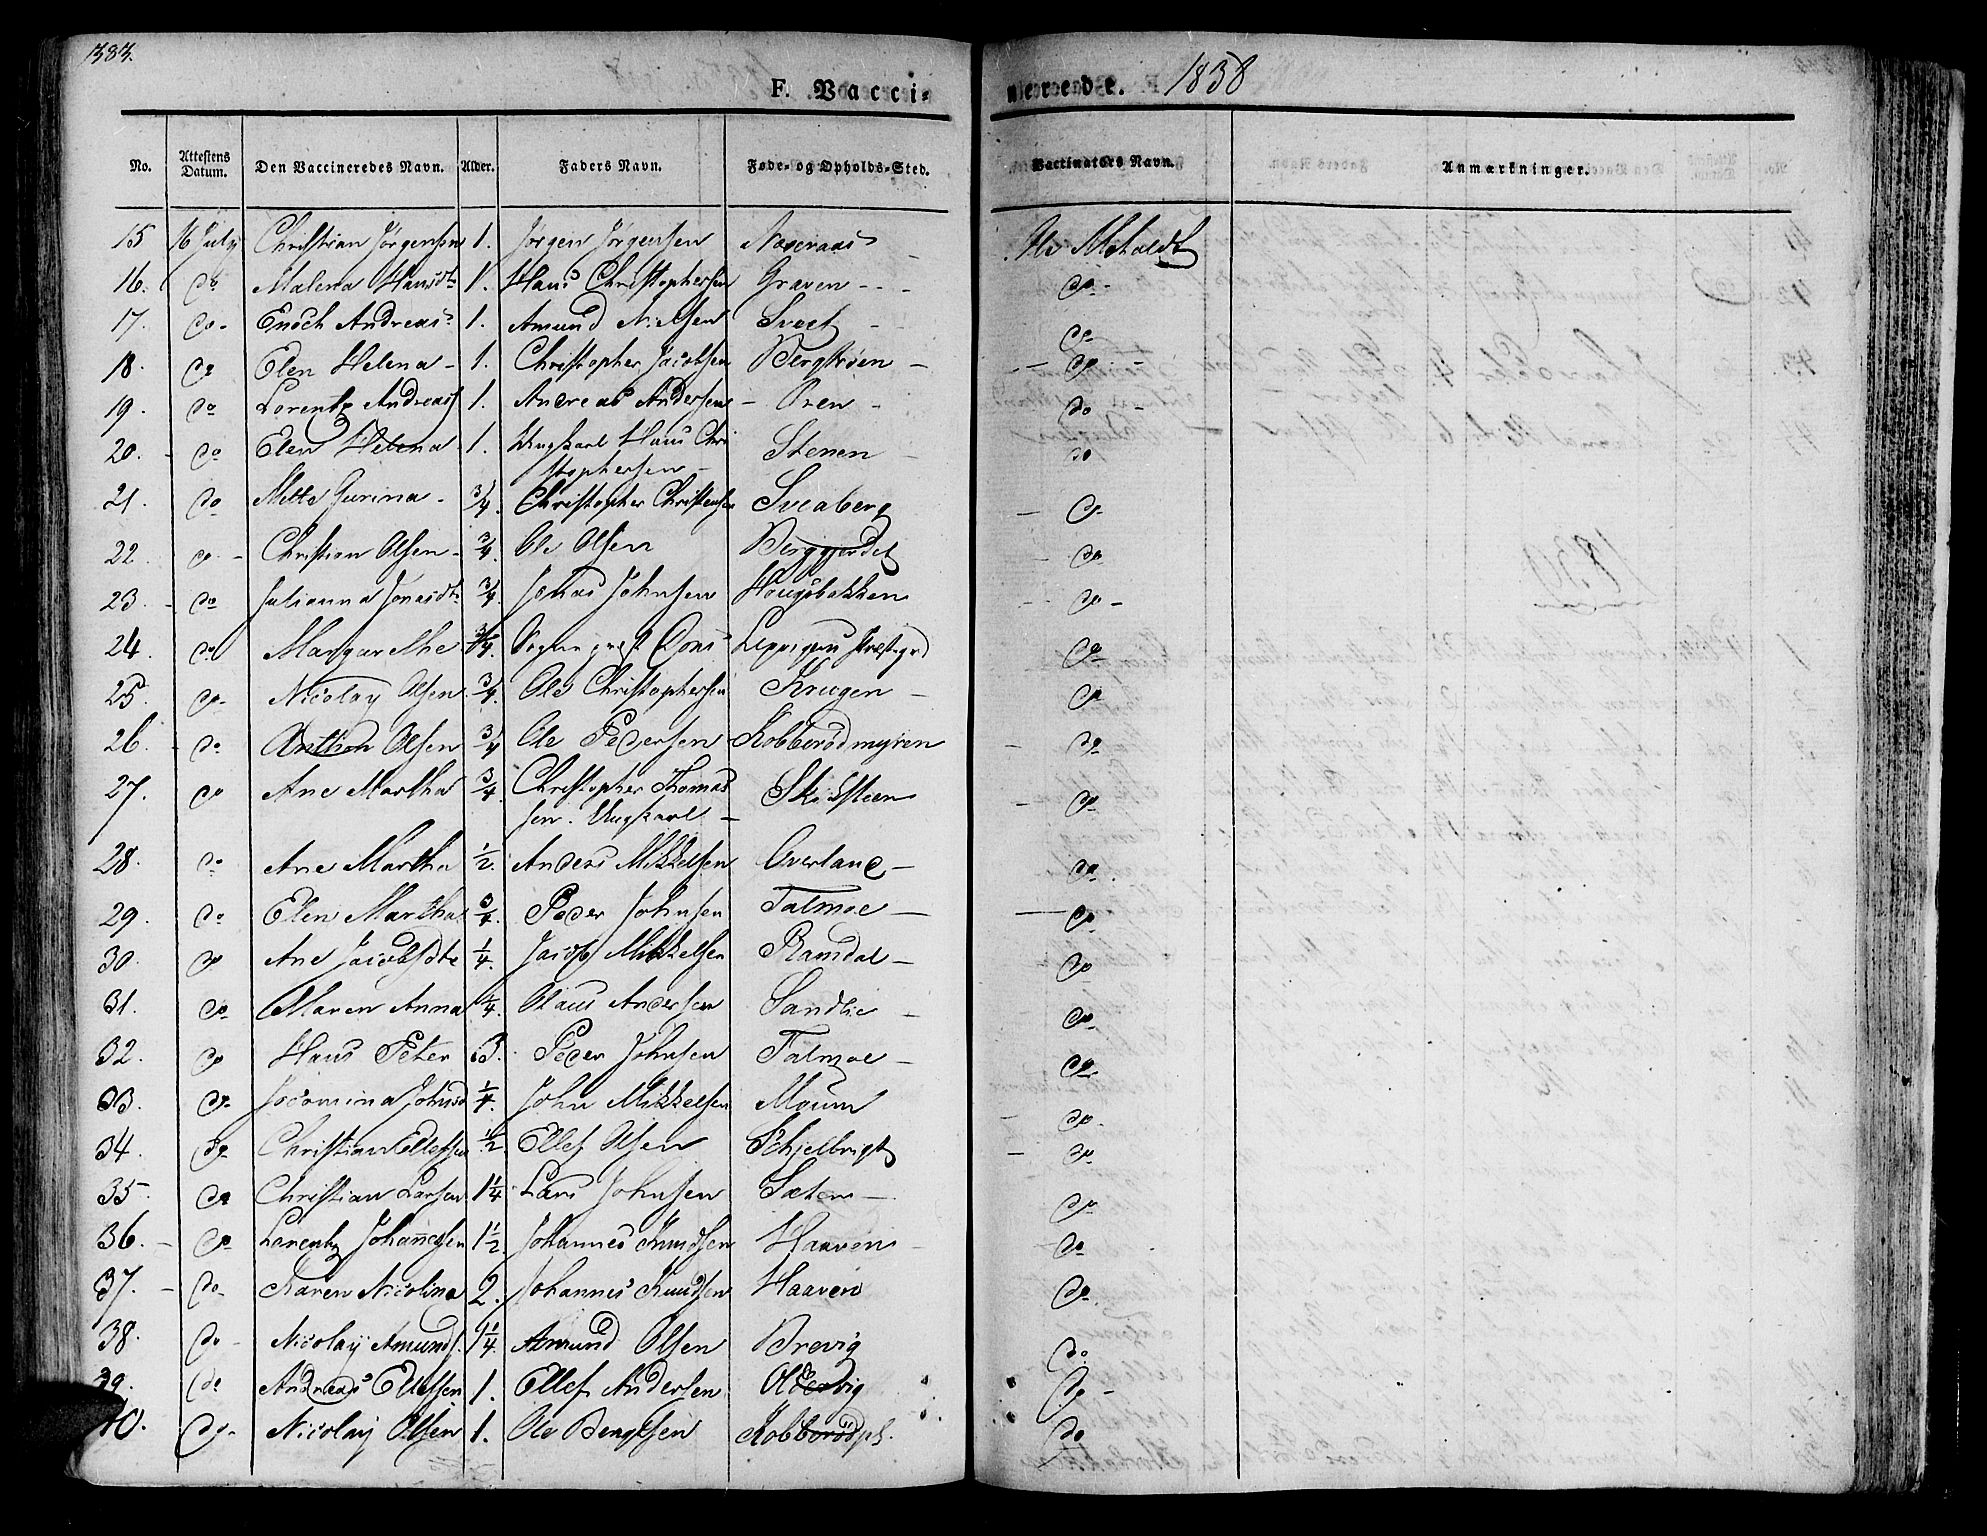 383.
F. Vacci- nerede. 1838
No. Attestens Datum. Den Vaccineredes Navn. Alder. Faders Navn. Føde- og Opholds-Sted. Vaccinators Navn. Anmærkninger.
15 16 July Christian Jörgensen 1. Jörgen Jörgensen
16. do Malena Hansdtr 1. Hans Christophersen Graven - do -
17. do - Enoch Andreas 1. Amund Nielsen do
18. do Elen Helena - 1. Christopher Jacobsen Bergkröen - do -
19. do Lorentz Andreas 1. Andreas Andersen - Oren - do -
20. - do Elen Helena 1. Ungkarl Hans Chri Stenen - do
stophersen -
21. do Mette Gurina - 3/4 Christopher Christensen Sveaberg - do
22. do - Christian Olsen - 3/4 Ole Olsen Berggjerdet do
23. - do Julianna Jonasdtr 3/4 Johas Johnsen Hougsbakken - do -
24. do Margarethe 3/4 Sogneprest do
25. do Nicolay Olsen 3/4 Ole Christophersen Krugen - do
26. - do Anthon Olsen 3/4 Ole Pedersen - Kobberödmyren - do
27. do Ane Martha 3/4 Christopher Thomas - do
sen. Ungkarl -
28. do Ane Martha 1/2. Anders Mikkelsen Overland - do.
29. do Elen Martha 3/4 Peder Johnsen Talmoe - do
30. do Ane Jacobsdtr 1/4. Jacob Mikkelsen Ramdal - do
31. do Maren Anna 1/4. Olaus Andersen Sandlie - do
32. do Hans Peter 3. Peder Johnsen Talmoe - do
33. do. Jocomina Johnsd 1/4. John Mikkelsen Moum - do.
34. do Christian Ellefsen 1/2 Ellef Olsen Schjelbrigt - do
35. do Christian Larsen 1 1/4 Lars Johnsen Sæter - do
36. - do Lorentz Johannesen 1 1/2 Johannes Knudsen Haaven - do
37. - do Karen Nicolina 2. Johannes Knudsen Haaven do
38. do - Nicolay Amunds. 1 1/4 Amund Olsen Brevig do
39. do Andreas Ellefsen 1. Ellef Andersen Oldervig do -
40. do - Nicolay Olsen 1. Ole Bengtsen Kobberödpl. do